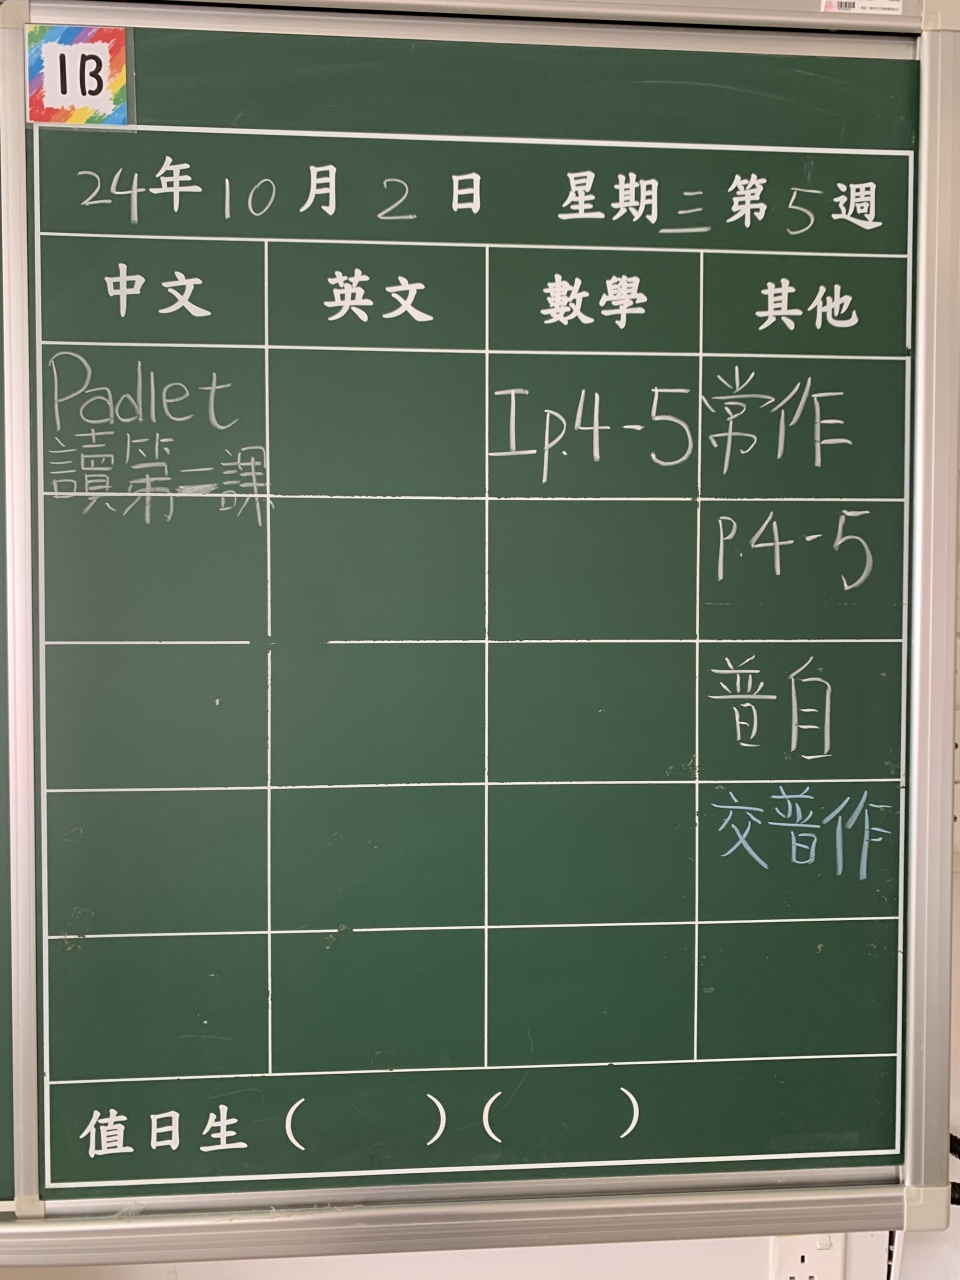 1B
24年10月2日 星期三第5週
中文 英文 數學 其他
Padlet
讀第一課
I p.4-5
常作
p.4-5
普自
交普作
值日生 ( ) ( )